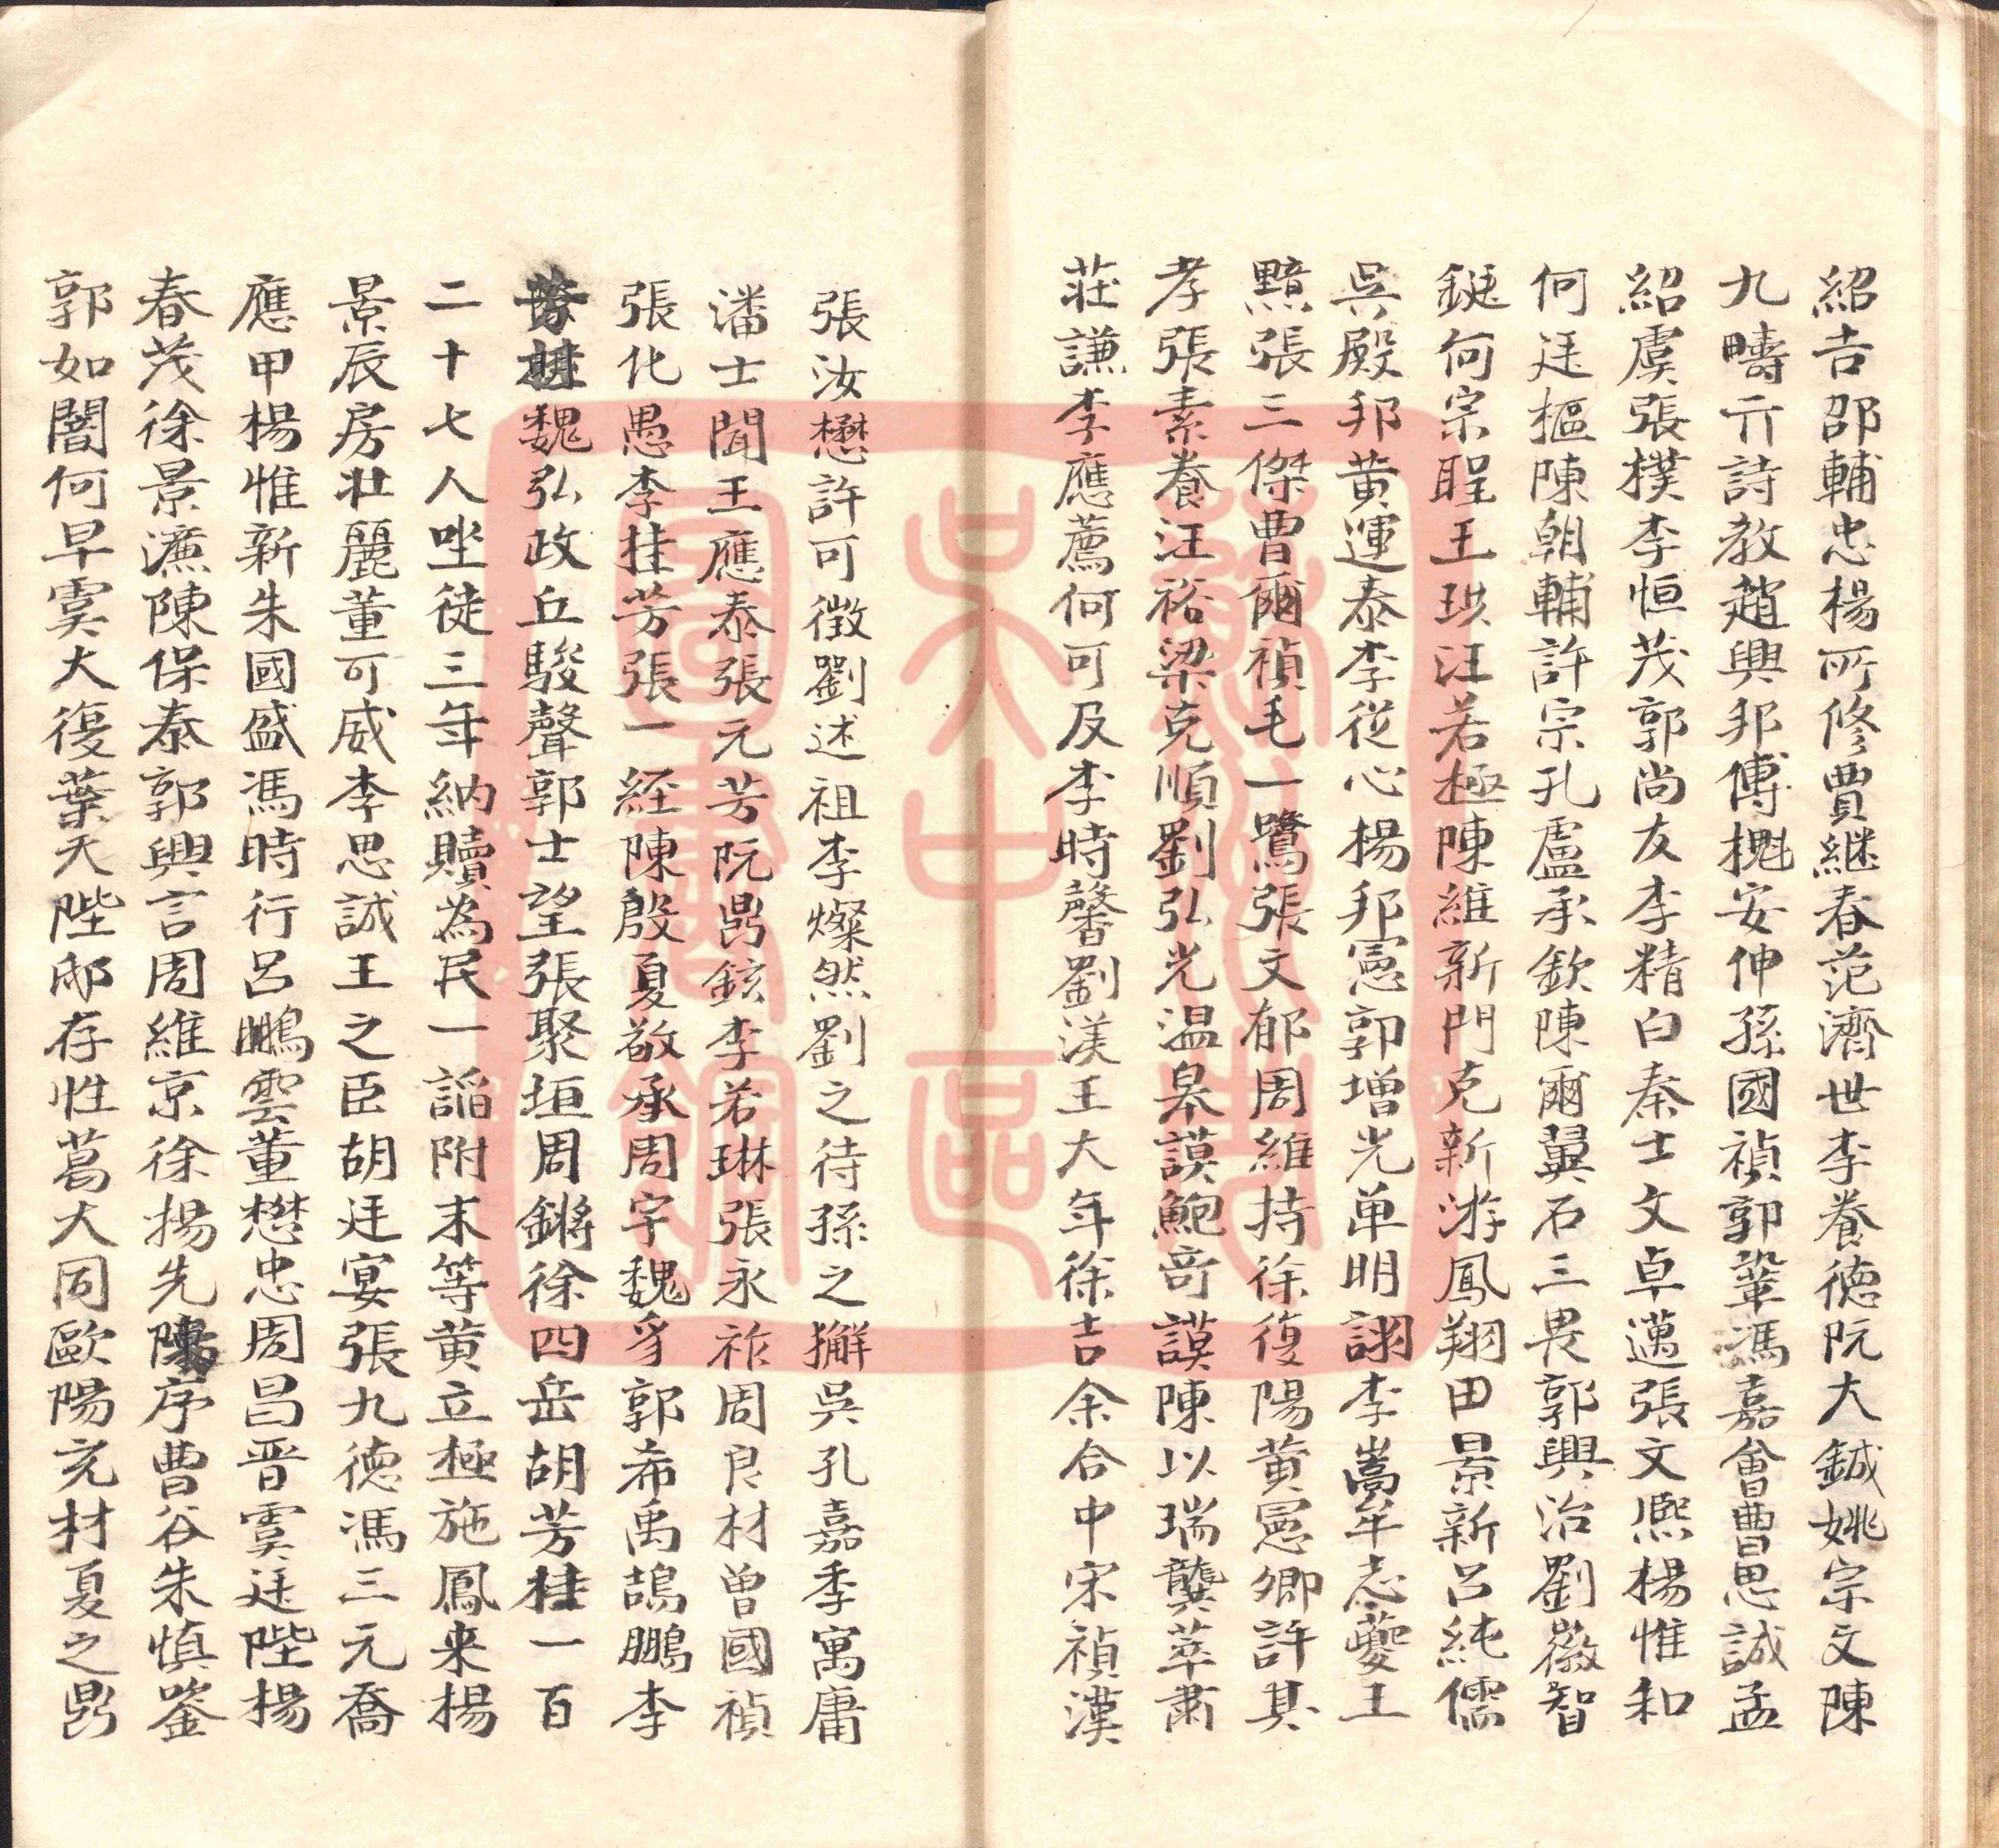 紹吉邵輔忠楊所修賈継春范濟世李養德阮大鋮姚宗文陳
九疇亓詩教趙興邦傅櫆安伸孫國禎郭鞏馮嘉會曹思誠孟
紹虞張樸李恒茂郭尚友李精白秦士文卓邁張文熈楊惟和
何廷樞陳朝輔許宗孔盧承欽陳爾翼石三畏郭興治劉徽智
鋌何宗聖王珙汪若極陳維新門克新游鳳翔田景新呂純儒
吳殿邦黃運泰李從心楊邦憲郭增光单明詡李嵩牟志夔王
黙張三傑曹爾禎毛一鷺張文郁周維持徐復陽黃憲卿許其
孝張素養汪裕梁克順劉弘光温皋謨鮑竒謨陳以瑞龔萃肅
莊謙李應薦何可及李時馨劉渼王大年徐吉余合中宋禎漢
張汝懋許可徴劉述祖李燦然劉之待孫之獬吳孔嘉季寓庸
潘士聞王應泰張元芳阮鼎鉉李若琳張永祚周良材曾國禎
張化愚李桂芳張一経陳殷夏敬承周宇魏豸郭希禹鴣鵬李
魏弘政丘駿聲郭士望張聚垣周鏘徐四岳胡芳桂一百
二十七人坐徒三年納贖為民一謟附末等黃立極施鳳来楊
景辰房壯麗董可威李思誠王之臣胡廷宴張九德馮三元喬
應甲楊惟新朱國盛馮時行呂鵬雲董懋忠周昌晋虞廷陛楊
春茂徐景濂陳保泰郭興言周維京徐揚先陳序曹谷朱慎鋻
郭如闇何早虞大復葉天陛邸存性葛大同歐陽充材夏之鼎